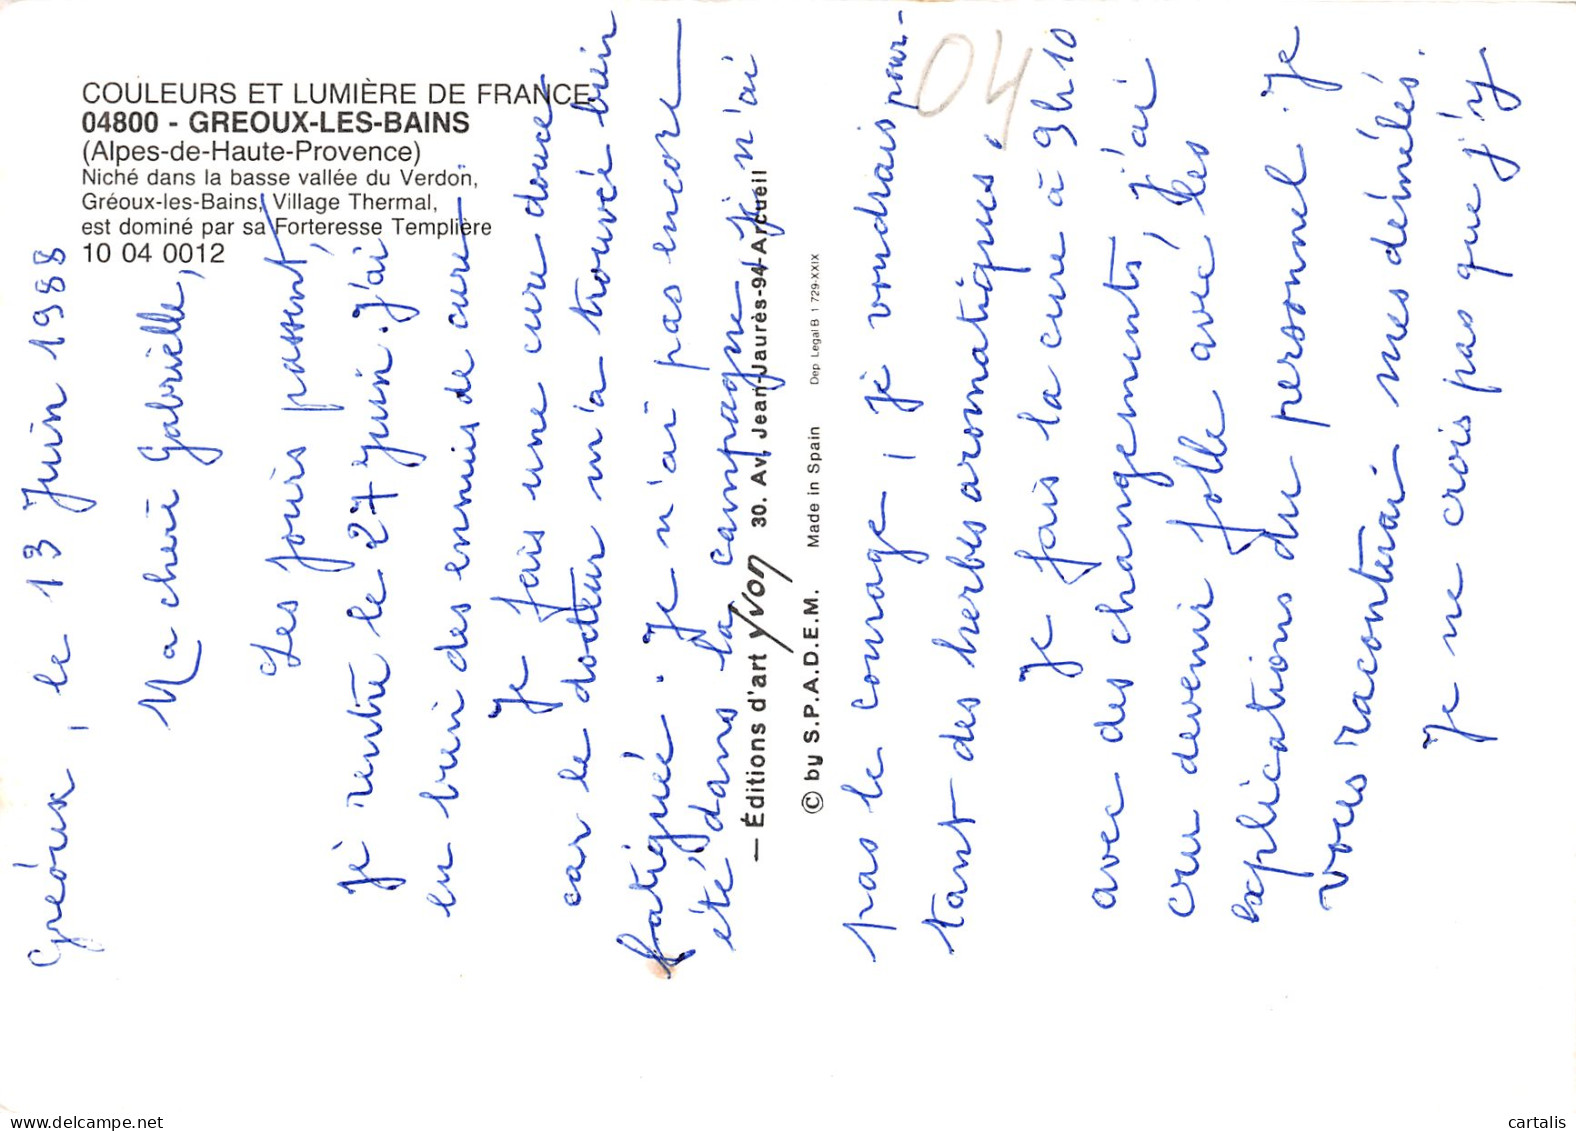 COULEURS ET LUMIÈRE DE FRANCE
04800 - GREOUX-LES-BAINS
(Alpes-de-Haute-Provence)
Niché dans la basse vallée du Verdon,
Gréoux-les-Bains, Village Thermal,
est dominé par sa Forteresse Templière
10 04 0012
Gréoux, le 13 Juin 1988
Ma chère Gabrielle,
Les jours passent,
je rentre le 27 juin. J'ai
eu bien des ennuis de cure.
Je fais une cure douce
car le docteur m'a trouvée bien
fatiguée. Je n'ai pas encore
été dans la campagne, je n'ai
— Éditions d'art yvon 30. Av. Jean-Jaurès-94-Arcueil
© by S.P.A.D.E.M. Made in Spain Dep Legal B 1 729-XXIX
pas le courage, je voudrais pour-
tant des herbes aromatiques.
Je fais la cure à 9h10
avec des changements, j'ai
cru devenir folle avec les
explications du personnel. Je
vous raconterai mes démêlés.
Je ne crois pas que j'y
04
cartalis
delcampe.net